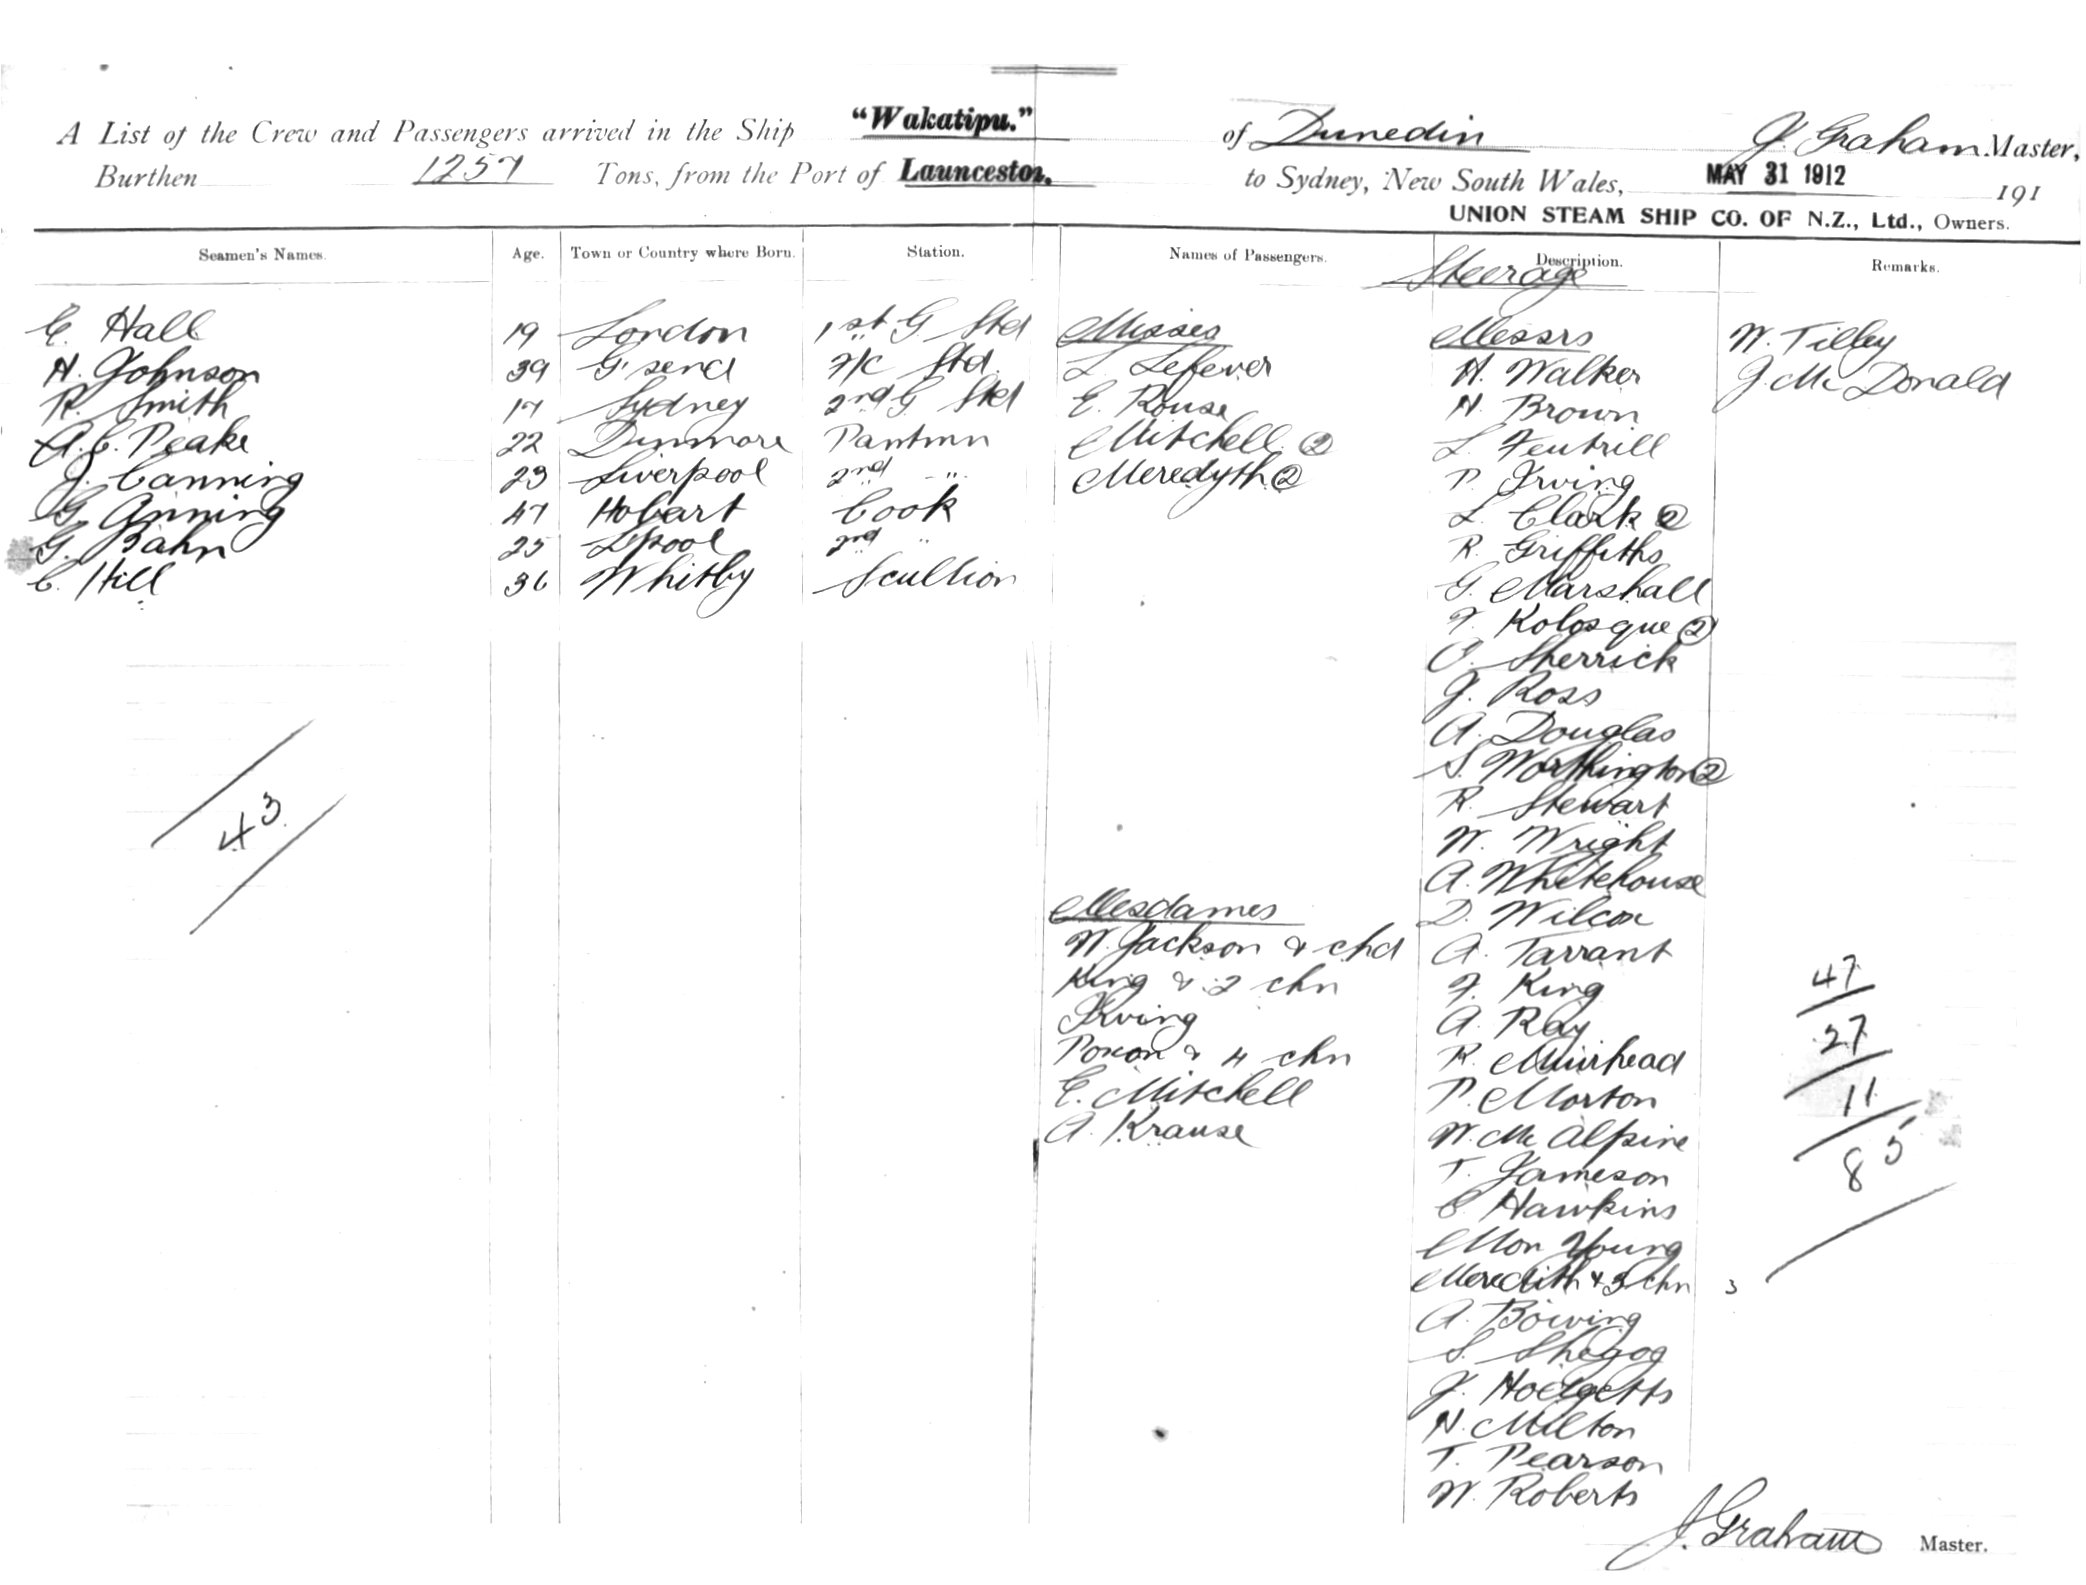 A List of the Crew and Passengers arrived in the Ship "Wakatipu." of Dunedin J. Graham Master,
Burthen 1257 Tons, from the Port of Launceston. to Sydney, New South Wales, MAY 31 1912 191
UNION STEAM SHIP CO. OF N.Z., Ltd., Owners.
Seamen's Names. Age. Town or Country where Born. Station. Names of Passengers. Description. Remarks.
Steerage
E. Hall 19 London 1st G Std
H. Johnson 39 G'send F/C Std.
R. Smith 17 Sydney 2nd G Std
A. C. Peake 22 Dunmore Pantmn
J. Canning 23 Liverpool 2nd "
G. Anning 47 Hobart Cook
G. Bahn 25 L'pool 2nd "
C. Hill 36 Whitby Scullion
43
Misses
L. Lefever
E. Rouse
Mitchell 2
Meredyth 2
Mesdames
W. Jackson & chd
King & 2 chn
Irving
Poxon & 4 chn
E. Mitchell
A. Krause
Messrs
H. Walker
H. Brown
L. Feutrill
P. Irving
L. Clark 2
R. Griffiths
G. Marshall
F. Kolosque 2
O. Sherrick
J. Ross
A. Douglas
S. Worthington 2
R. Stewart
W. Wright
A. Whitehouse
D. Wilcox
A. Tarrant
F. King
A. Ray
R. Muirhead
P. Morton
W. Mc Alpine
T. Jameson
C. Hawkins
Mon Young
Meredith & 3 chn 3
A. Bowing
S. Shegog
J. Hodgetts
N. Milton
T. Pearson
W. Roberts
W. Tilley
J. Mc Donald
47
27
11
85
J. Graham Master.